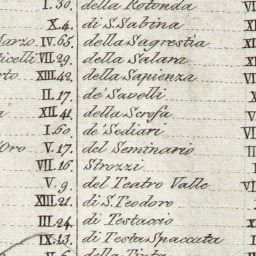 I. 30. della Rotonda
X. 4. di S. Sabina
Marzo IV. 65. della Sagrestia
VII. 29. della Salara
XIII. 42. della Sapienza
II. 17. de' Savelli
XII. 41. della Scrofa
I. 60. de' Sediari
V. 17. del Seminario
VII. 16. Strozzi
V. 9. del Teatro Valle
XIII. 21. di S. Teodoro
III. 24. di Testaccio
IX. 13. di Testa Spaccata